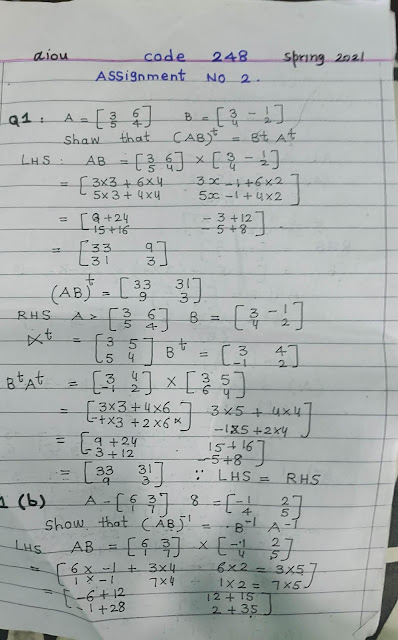 aiou code 248 spring 2021
Assignment No 2.
Q1: A = [3 6 B = [3 -1
5 4] 4 2]
Shaw that (AB)^t = B^t A^t
LHS: AB = [3 6 × [3 -1
5 4] 4 2]
= [3×3+6×4 3×-1+6×2
5×3+4×4 5×-1+4×2]
= [9+24 -3+12
15+16 -5+8]
= [33 9
31 3]
(AB)^t = [33 31
9 3]
RHS A = [3 6 B = [3 -1
5 4] 4 2]
A^t = [3 5 B^t = [3 4
5 4] -1 2]
B^t A^t = [3 4 × [3 5
-1 2] 6 4]
= [3×3+4×6 3×5+4×4
-1×3+2×6× -1×5+2×4]
= [9+24 15+16
-3+12 -5+8]
= [33 31 ∵ LHS = RHS
9 3]
1 (b) A - [6 3 8 = [-1 2
1 7] 4 5]
Show that (AB)^-1 = B^-1 A^-1
LHS AB = [6 3 × [-1 2
1 7] 4 5]
= [6×-1 + 3×4 6×2 = 3×5
1×-1 7×4 1×2 = 7×5]
= [-6+12 12+15
-1+28 2+35]